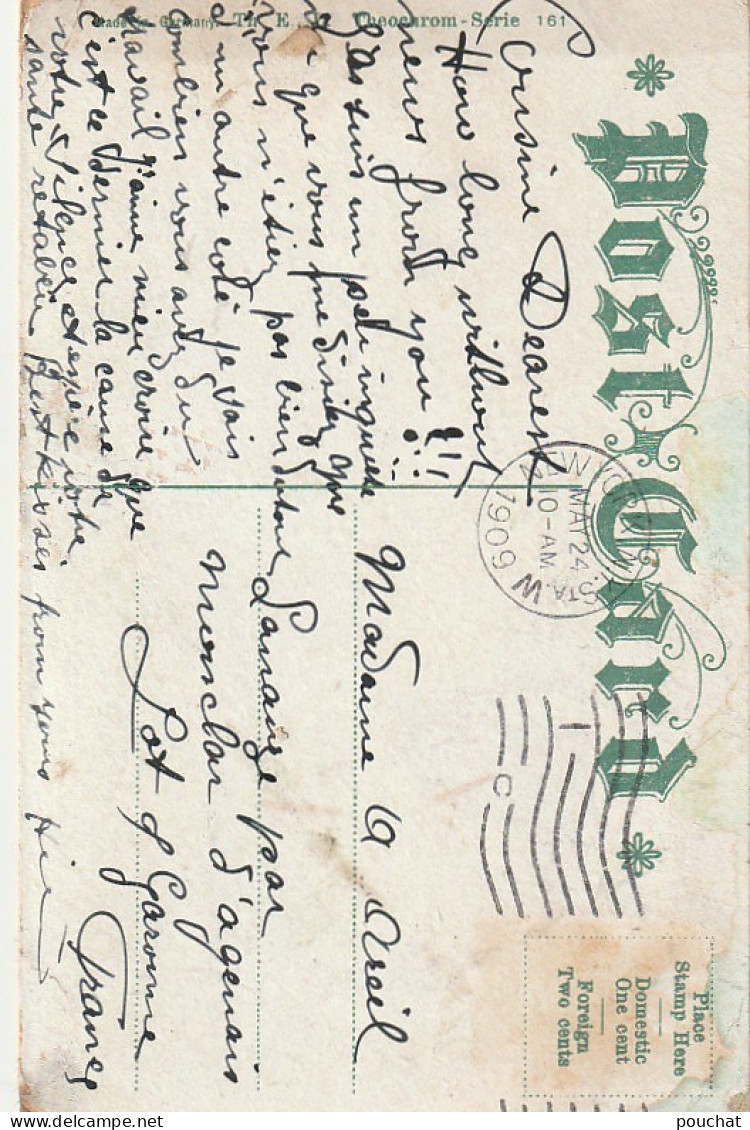 Made in Germany. Th. E. L. Theochrom-Serie 161
Post Card
Cousine Dearest
How long without
news from you !!!
J'en suis un peu inquiète
que vous me disiez que
vous n'étiez pas bien
d'un autre coté je sais
combien vous avez du
travail j'aime mieux croire que
c'est ce dernier la cause de
votre silence, et espère votre
santé rétablie Best kisses from yours
NEW YORK, N.Y. STA. W
MAY 24
10-AM
1909
C
Place
Stamp Here
Domestic
One cent
Foreign
Two cents
Madame
Lassange par
Monclar d'agenais
Lot & Garonne
France
pouchat